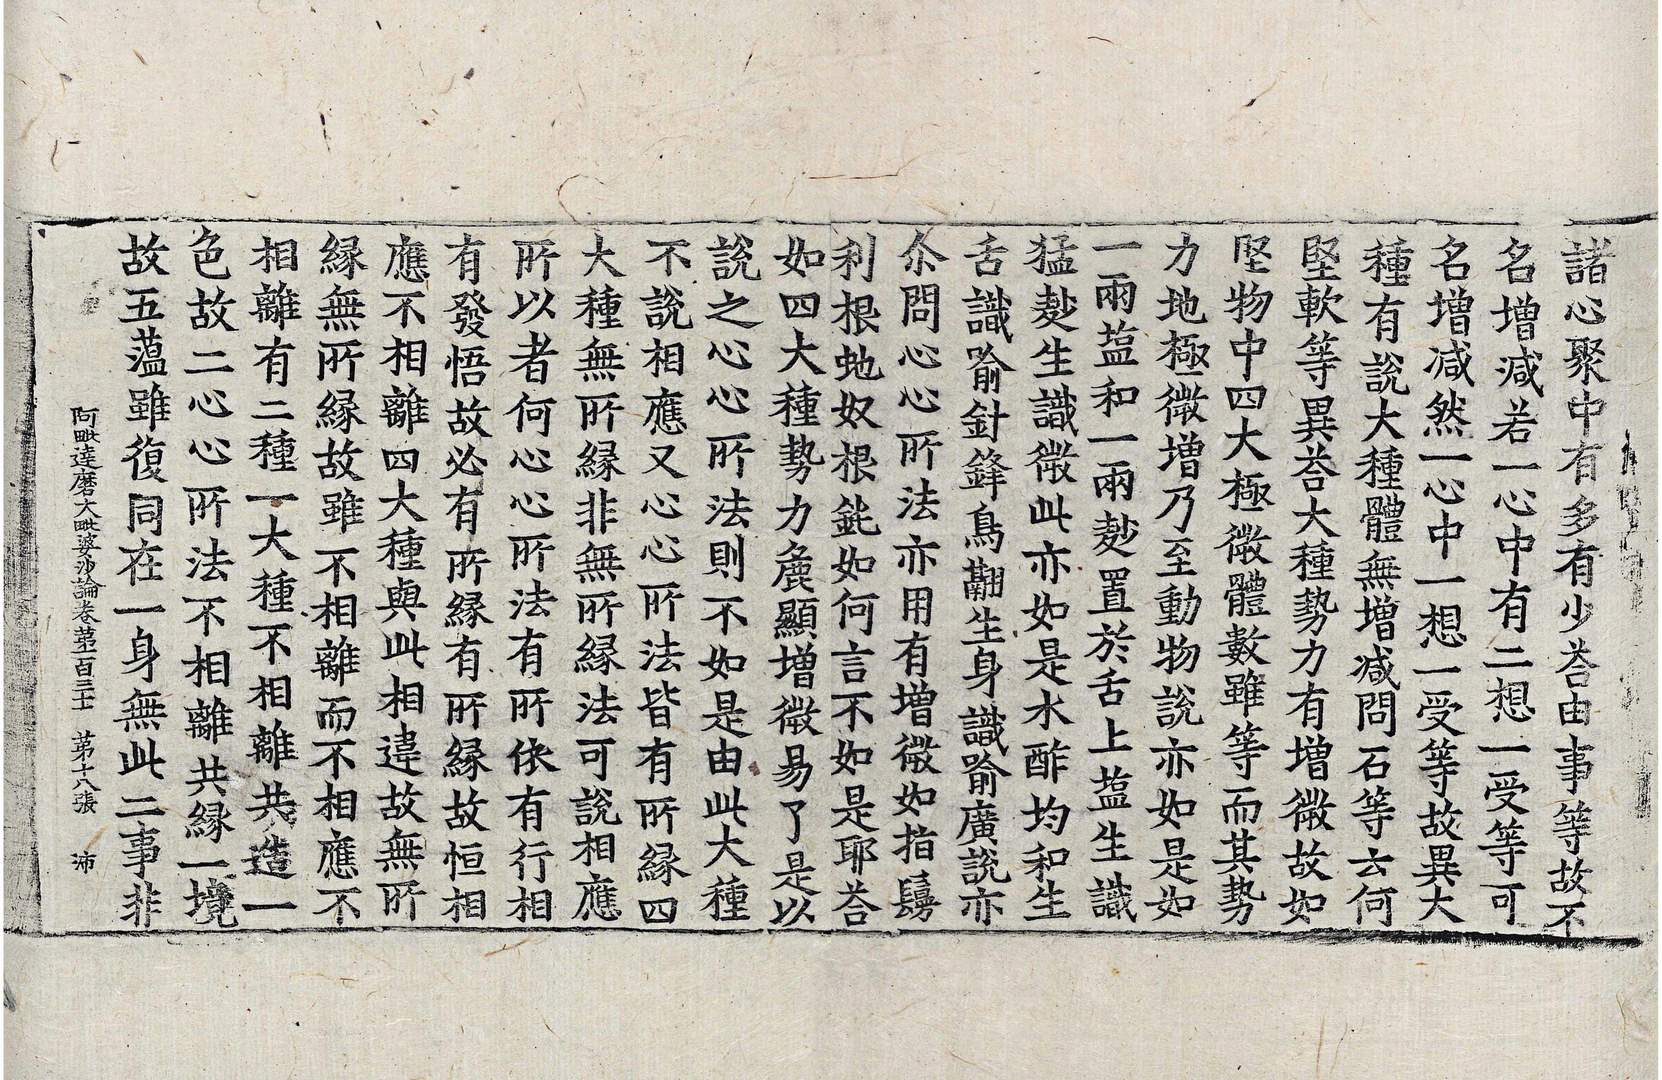 諸心聚中有多有少荅由事等故不
名增減若一心中有二想一受等可
名增減然一心中一想一受等故異大
種有說大種體無增減問石等云何
堅軟等異荅大種勢力有增微故如
堅物中四大極微體數雖等而其勢
力地極微增乃至動物說亦如是如
一兩塩和一兩麨置於舌上塩生識
猛麨生識微此亦如是水酢均和生
舌識喻針鋒鳥翮生身識喻廣說亦
尒問心心所法亦用有增微如指鬘
利根虵奴根鈍如何言不如是耶荅
如四大種勢力麁顯增微易了是以
說之心心所法則不如是由此大種
不說相應又心心所法皆有所縁四
大種無所縁非無所縁法可說相應
所以者何心心所法有所依有行相
有發悟故必有所縁有所縁故恒相
應不相離四大種與此相違故無所
縁無所縁故雖不相離而不相應不
相離有二種一大種不相離共造一
色故二心心所法不相離共縁一境
故五蘊雖復同在一身無此二事非
阿毗達磨大毗婆沙論卷苐一百三十一 苐十八張 沛